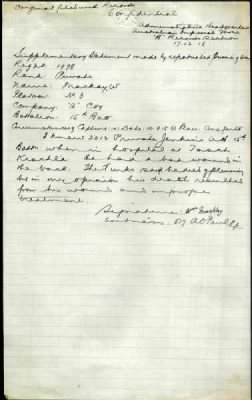 Original filed Wound Records
Confidential
Administrative Headquarters
Australian Imperial Force
"A" Records Section
17.12.18
Supplementary Statement made by repatriated Prisoner of War
Regtl 1998
Rank Private
Name: Mackay W
Platoon No 3
Company "A" Coy
Battalion 15th Batt
Circumstances Capture: Date 10.5.15 Place Anzac
I knew 2012 Private Jenkins A.H. 15th
Battn when in hospital at Tasch
Keschla. He had a bad wound in
the back. The Turks said he died of
but in our opinion his death resulted
from his wound and improper
treatment.
Signature. Wm Mackay
Witness.